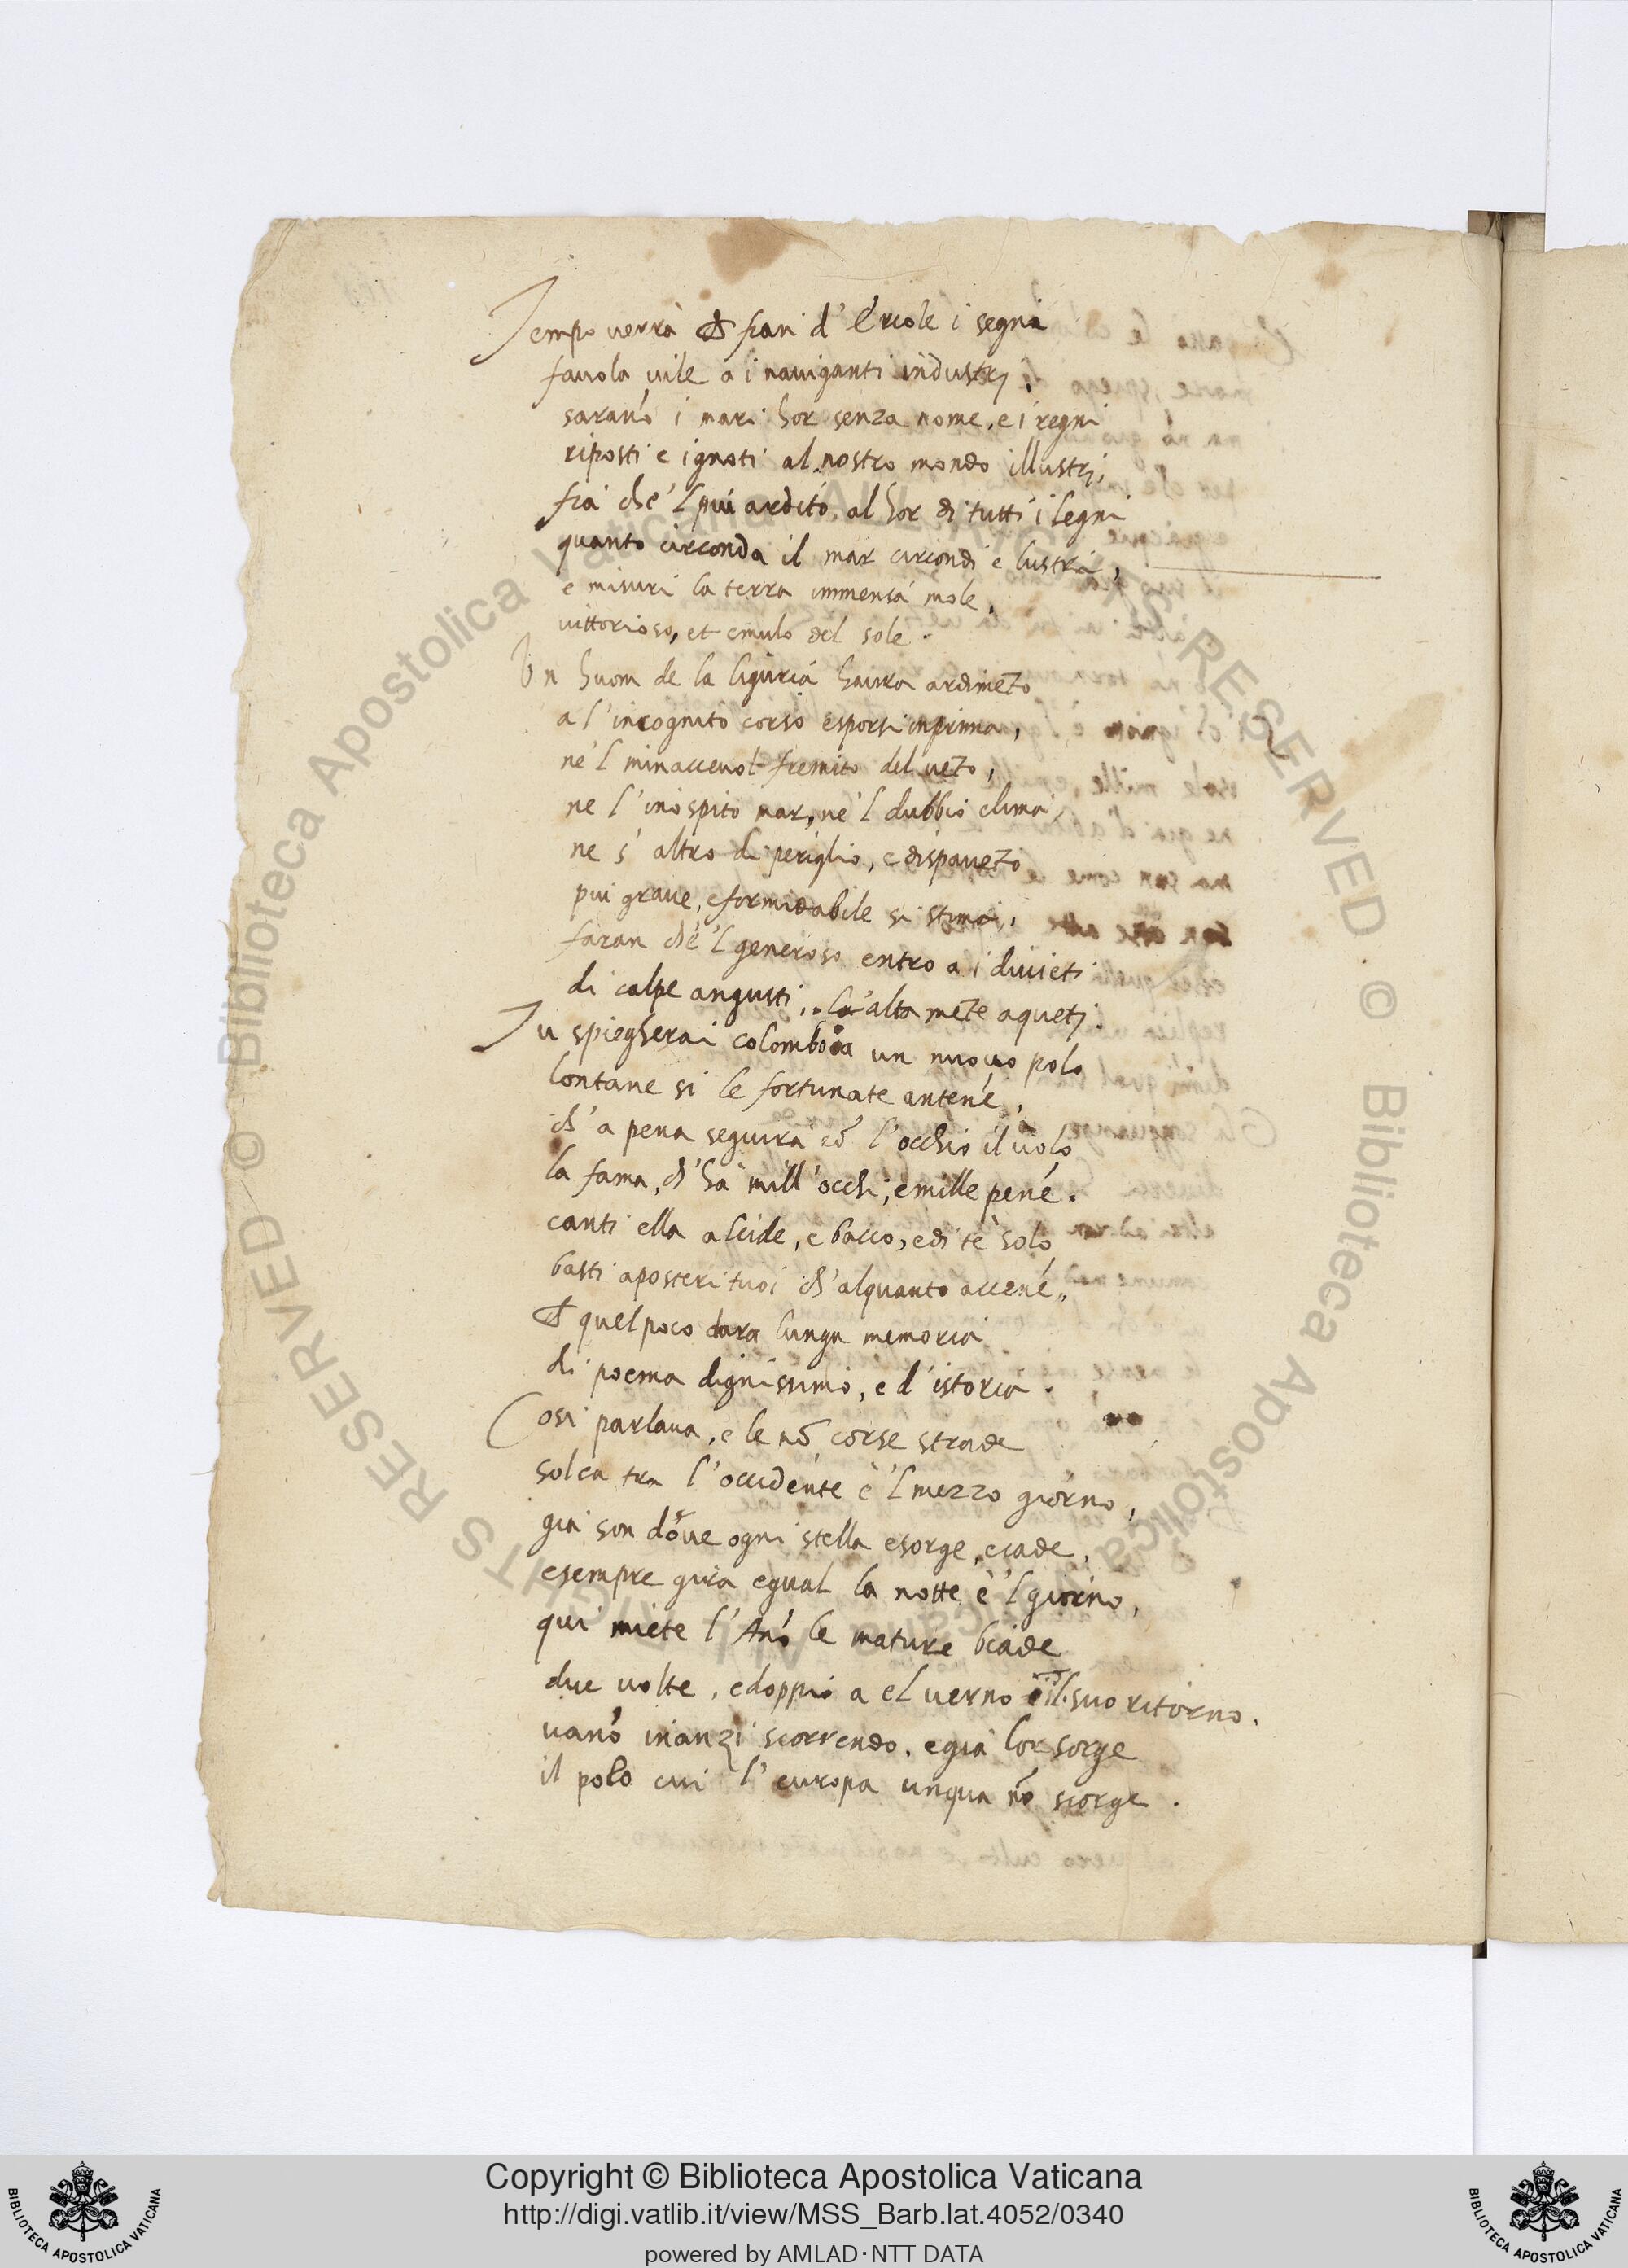 Tempo verrà ch̃ fian d'Ercole i segni
fauola uile a i nauiganti industri,
sarañо i mari hor senza nome, e i regni
riposti e ignoti al nostro mondo illustri,
fia che 'l piu ardito al hor di tutti i legni
quanto circonda il mar circondi e lustri,
e misuri la terra immensa mole,
uittorioso, et emulo del sole.
Vn huom de la liguria haura ardimẽto
a l'incognito corso esporsi in prima,
ne 'l minacceuol fremito del uẽto,
ne l'inospito mar, ne 'l dubbio clima,
ne s'altro di periglio, e di spauẽto
piu graue, e formidabile si stima,
faran che 'l generoso entro a i diuieti
di calpe angusti, l'alta mẽte aqueti.
Tu spiegherai colombo a un nuouo polo
lontane si le fortunate anteñe,
ch'a pena seguira cõ l'occhio il uolo
la fama, ch'ha mill'occhi, e mille peñe.
canti ella alcide, e bacco, e di te solo
basti a posteri tuoi ch'alquanto acceñe,
ch̃ quel poco dara lunga memoria
di poema dignissimo, e d'istoria.
Cosi parlaua, e le nõ corse strade
solca tra l'occidente e 'l mezzo giorno,
gia son doue ogni stella e sorge, e cade,
e sempre gira egual la notte e 'l giorno,
qui miete l'Año le mature biade
due uolte, e doppio a el uerno il suo ritorno.
uaño inanzi scorrendo, e gia lor sorge
il polo cui l'europa unqua nõ scorge.
Copyright © Biblioteca Apostolica Vaticana
http://digi.vatlib.it/view/MSS_Barb.lat.4052/0340
powered by AMLAD·NTT DATA
BIBLIOTECA APOSTOLICA VATICANA
BIBLIOTECA APOSTOLICA VATICANA